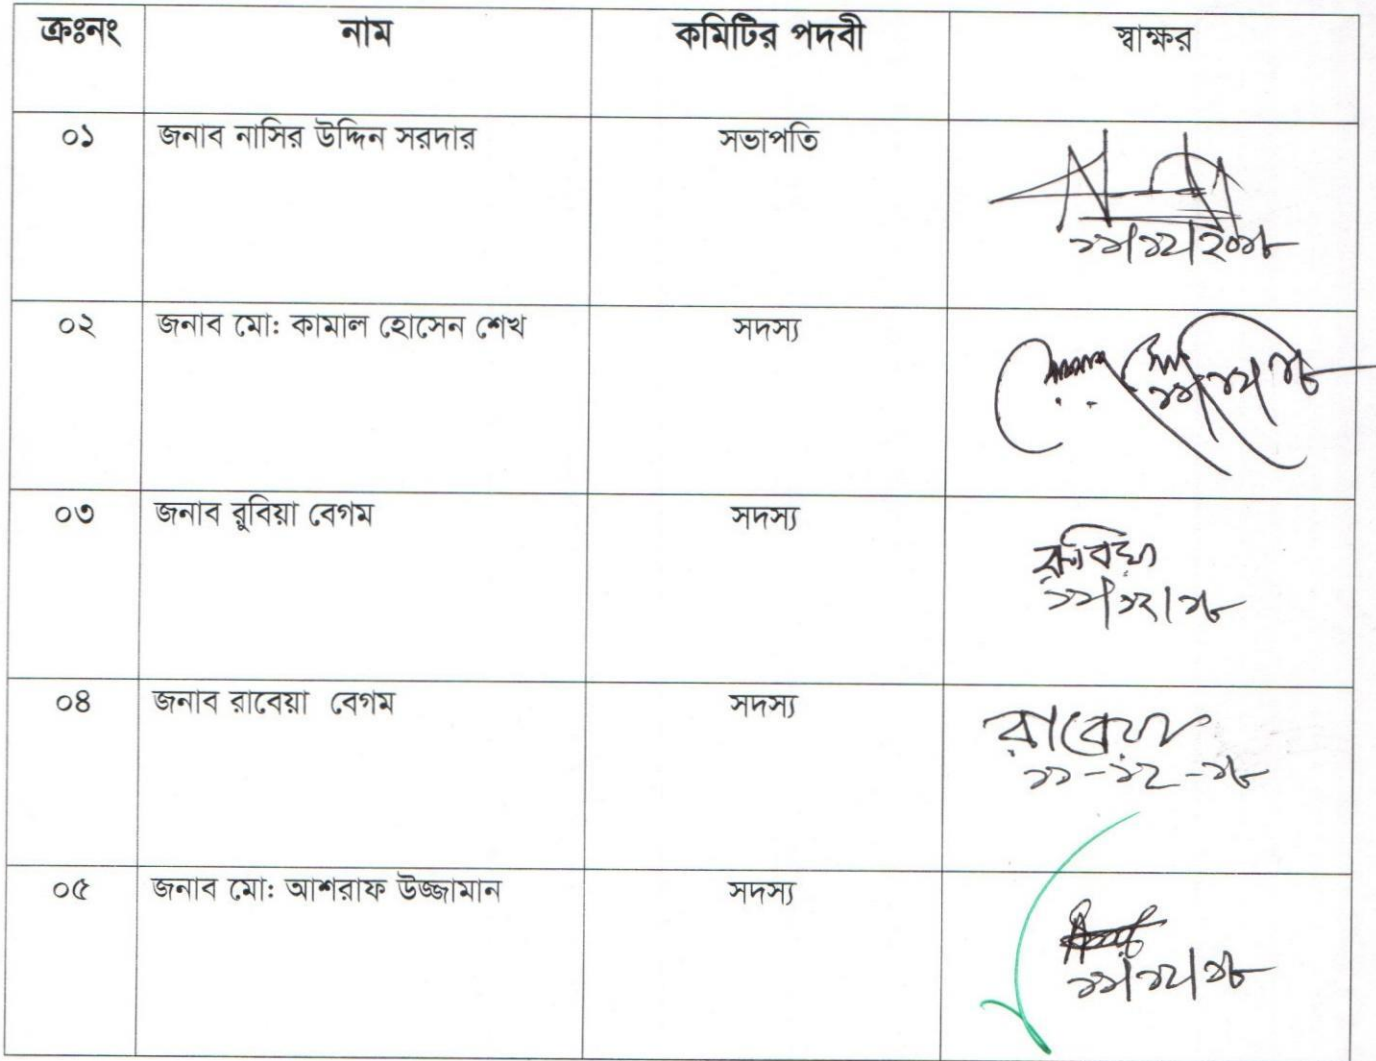 ক্রঃনং নাম কমিটির পদবী স্বাক্ষর
০১ জনাব নাসির উদ্দিন সরদার সভাপতি
১১/১২/২০১৮
০২ জনাব মো: কামাল হোসেন শেখ সদস্য
১১/১২/১৮
০৩ জনাব রুবিয়া বেগম সদস্য রুবিয়া
১১/১২/১৮
০৪ জনাব রাবেয়া বেগম সদস্য রাবেয়া
১১-১২-১৮
০৫ জনাব মো: আশরাফ উজ্জামান সদস্য
১১/১২/১৮